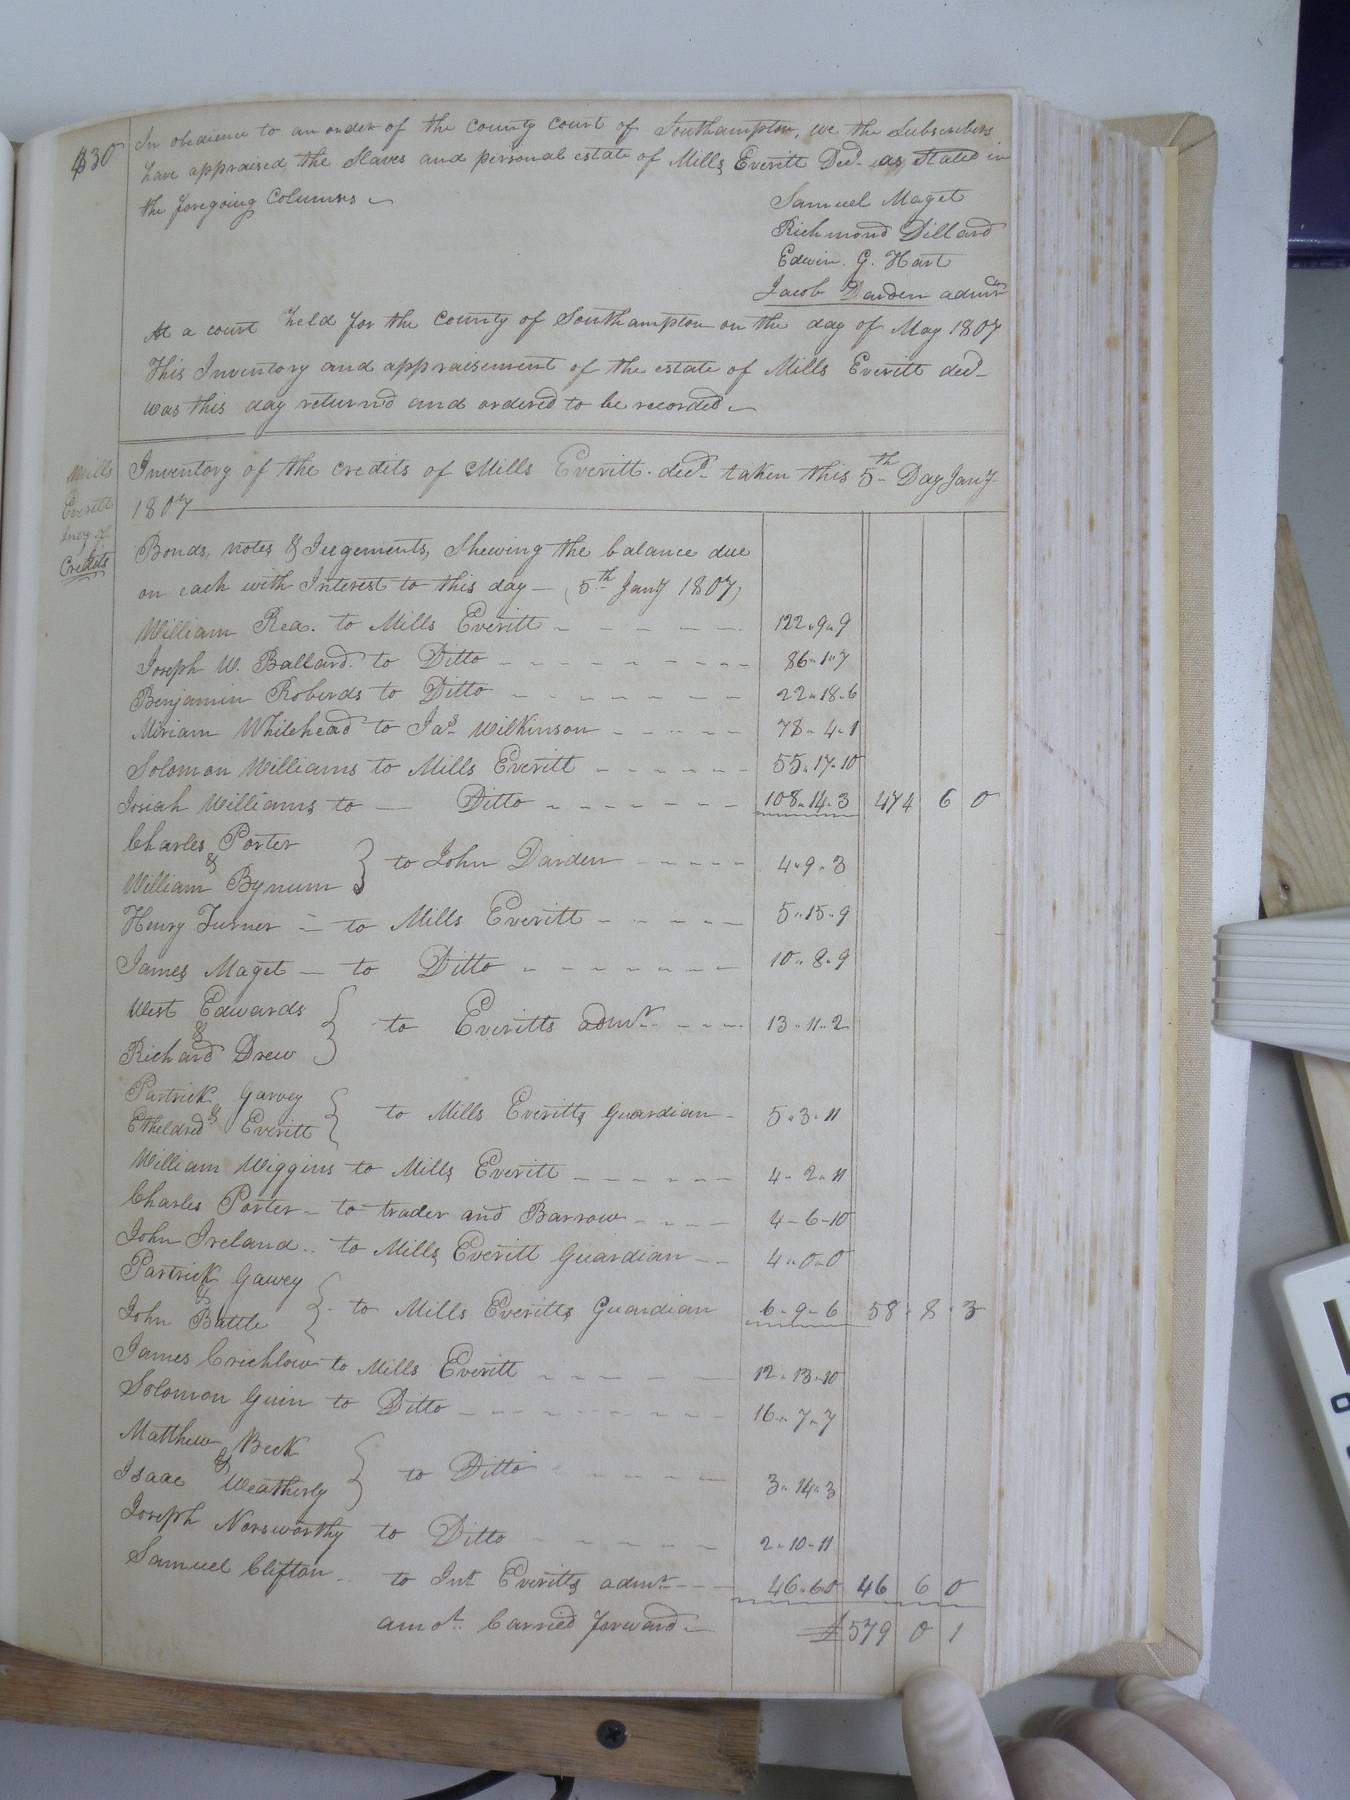 430
In obedience to an order of the County Court of Southampton, we the Subscribers
have appraised, the Slaves and personal estate of Mills Everitt Decd. as stated in
the foregoing Columns
Samuel Maget
Richmond Dillard
Edwin. G. Hart
Jacob Darden admr
At a court held for the County of Southampton on the day of May 1807
This Inventory and appraisement of the estate of Mills Everitt decd
was this day returnd and ordered to be recorded
Mills
Everitt
Invy of
Credits
Inventory of the credits of Mills Everitt. decd. taken this 5th Day Jany
1807
Bonds, notes & Jugements, Shewing the balance due
on each with Interest to this day — (5th Jany 1807)
William Rea. to Mills Everitt 122.9.9
Joseph W. Ballard. to Ditto 86.1.7
Benjamin Roberds to Ditto 22.18.6
Miriam Whitehead to Jas Wilkinson 78.4.1
Solomon Williams to Mills Everitt 55.17.10
Josiah Williams to — Ditto 108.14.3 474 6 0
Charles Porter
&
William Bynum } to John Darden 4.9.3
Henry Turner — to Mills Everitt 5.15.9
James Maget — to Ditto 10.8.9
West Edwards
&
Richard Drew } to Everitts admr 13.11.2
Partrick Garvey
&
Etheldred Everitt } to Mills Everitts Guardian 5.3.11
William Wiggins to Mills Everitt 4.2.11
Charles Porter — to trader and Barrow 4-6-10
John Ireland .. to Mills Everitt Guardian 4.0.0
Partrick Garvey
&
John Battle } to Mills Everitts Guardian 6.9.6 58.8.3
James Crichlow to Mills Everitt 12.13.10
Solomon Guin to Ditto 16.7.7
Matthew Beck
&
Isaac Weatherly } to Ditto 3.14.3
Joseph Norsworthy to Ditto 2.10.11
Samuel Clifton to Everitts admr 46.6.0 46 6 0
amot. Carried forward £ 579 0 1